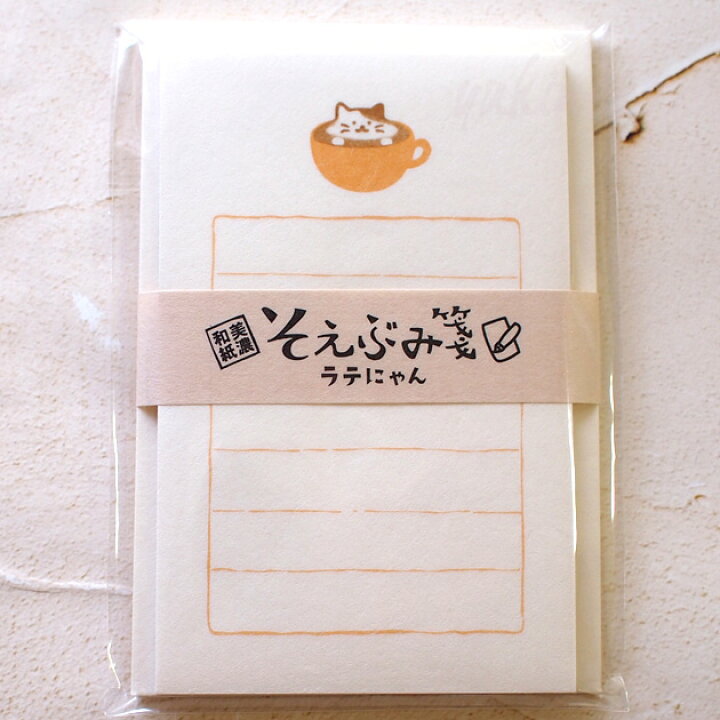 美濃和紙
そえぶみ箋
ラテにゃん